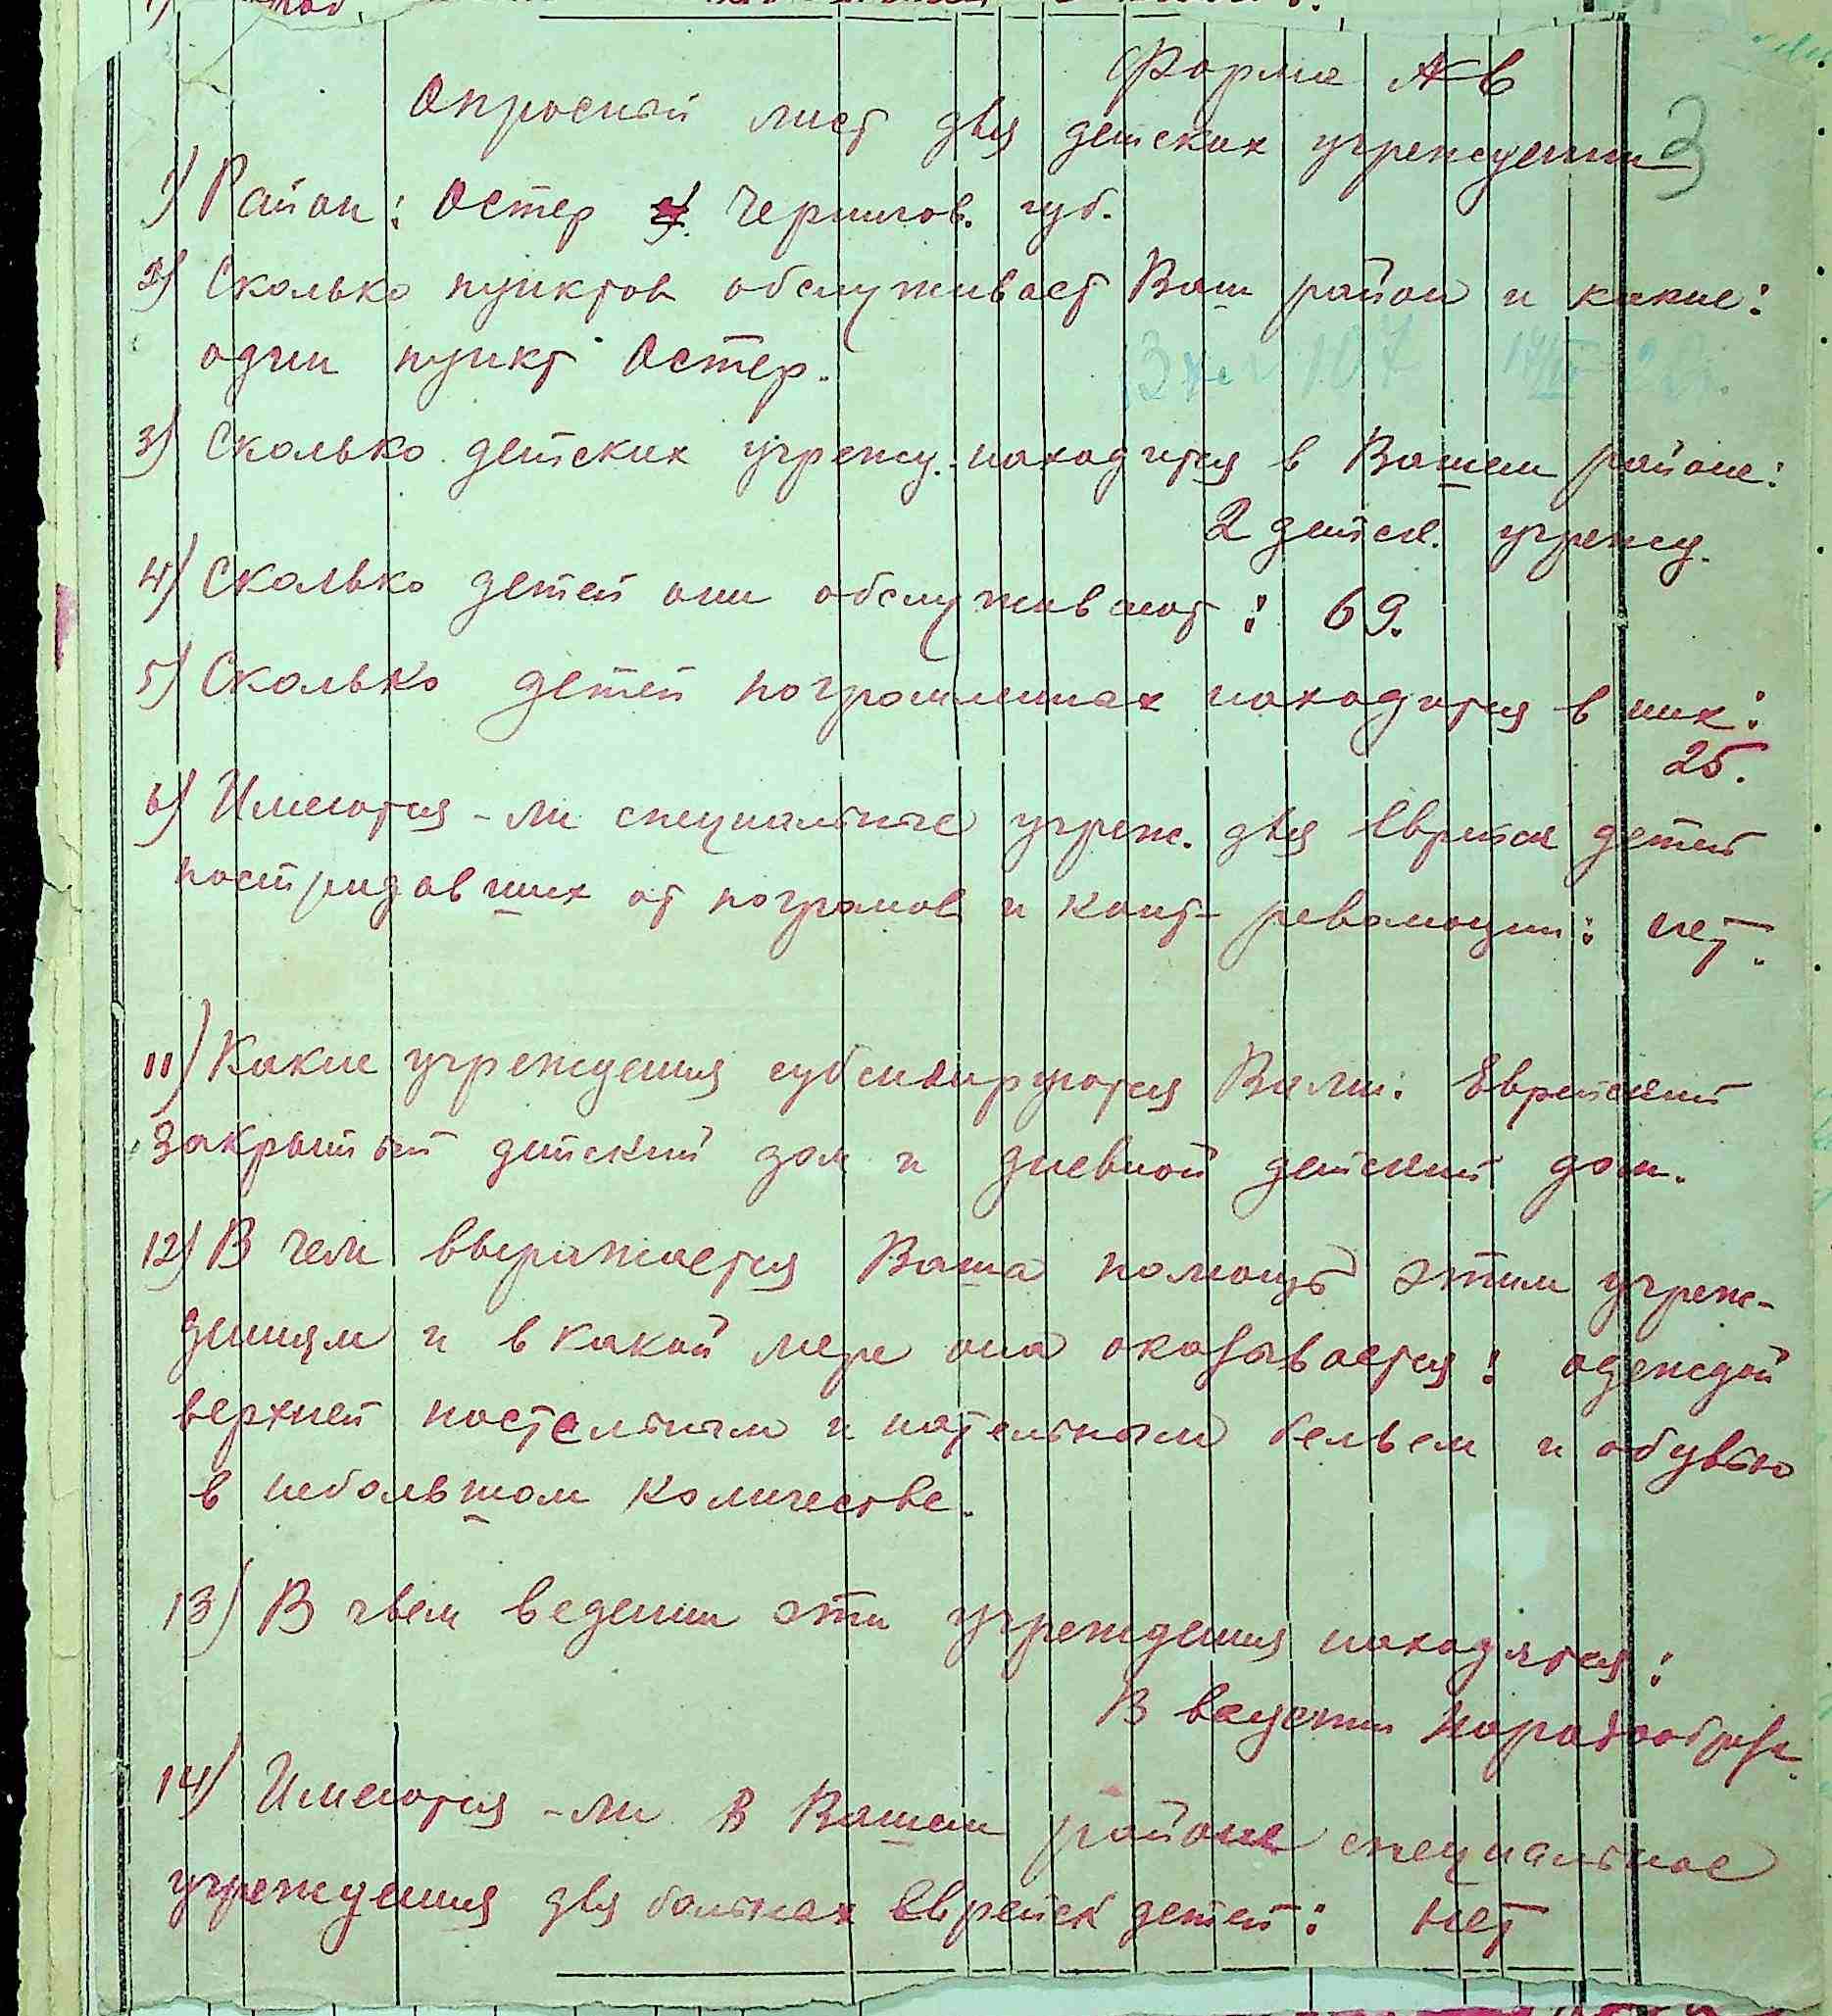 Форма № 6
Опросный лист для детских учреждений
3
1) Район: Остер Чернигов. губ.
2) Сколько пунктов обслуживает Ваш район и какие:
один пункт Остер.
107
3) Сколько детских учрежд. находится в Вашем районе:
2 детск. учрежд.
4) Сколько детей они обслуживают: 69.
5) Сколько детей погромленных находится в них:
25.
6) Имеются-ли специальные учреж. для Еврейск детей
пострадавших от погромов и конт-революции: нет.
11) Какие учреждения субсидируются Вами: Еврейский
закрытый детский дом и дневной детский дом.
12) В чем выражается Ваша помощь этим учреж-
дениям и в какой мере она оказывается: одеждой
верхней постельным и нательным бельем и обувью
в небольшом количестве.
13) В чьем ведении эти учреждения находятся:
В ведении Наробраза.
14) Имеются-ли в Вашем районе специальные
учреждения для больных Еврейск детей: нет